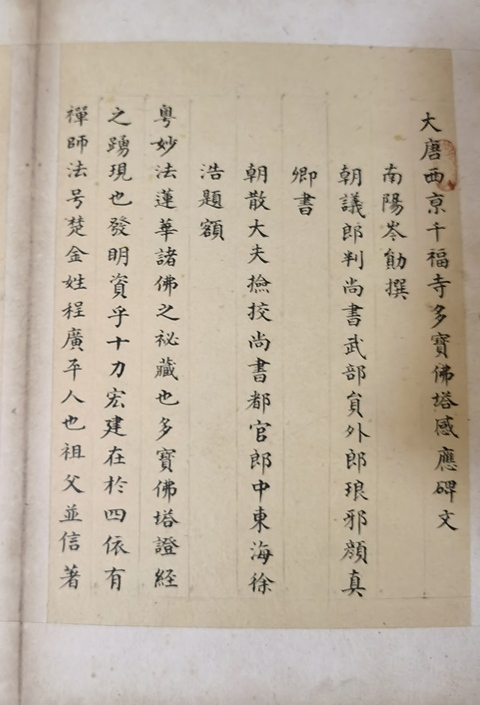 大唐西京千福寺多寶佛塔感應碑文
南陽岑勛撰
朝議郎判尚書武部貟外郎琅邪顏真
卿書
朝散大夫撿挍尚書都官郎中東海徐
浩題額
粵妙法蓮華諸佛之祕藏也多寶佛塔證經
之踴現也發明資乎十力宏建在於四依有
禪師法号楚金姓程廣平人也祖父並信著